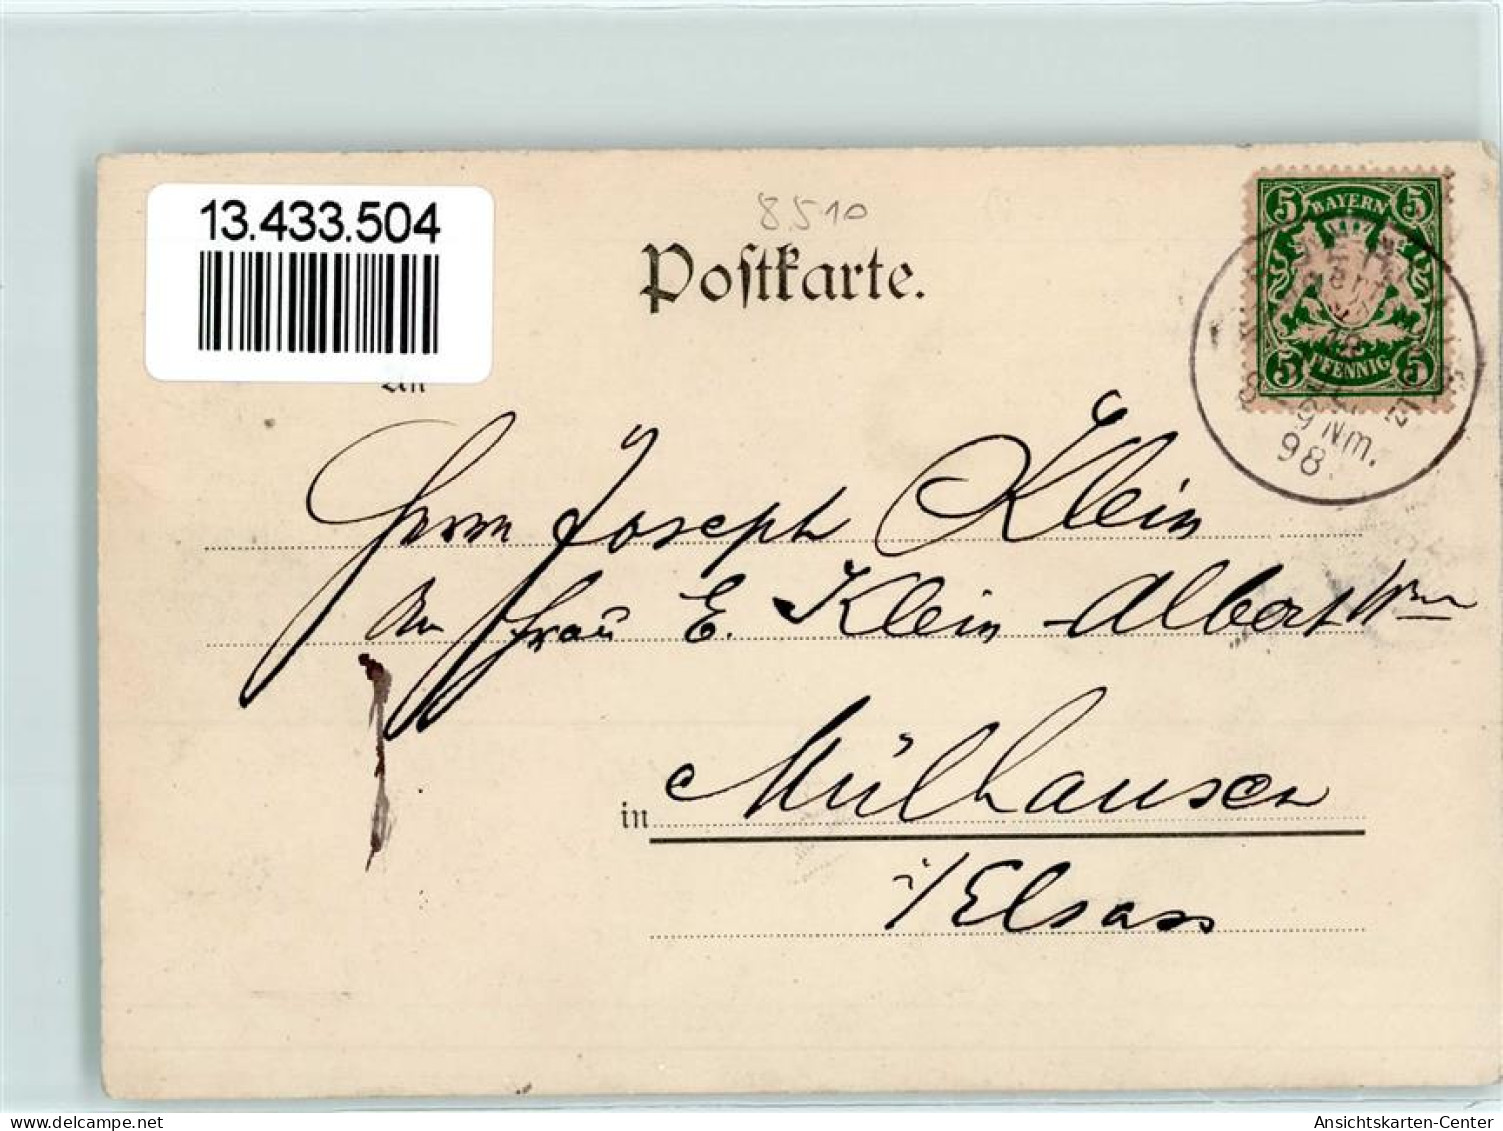 13.433.504
8510
Postkarte.
An
BAYERN
5 5
5 5
PFENNIG
9 Nm.
98.
Herrn Joseph Klein
An Frau E. Klein-Albert Wwe
in Mülhausen
i/Elsass
Ansichtskarten-Center